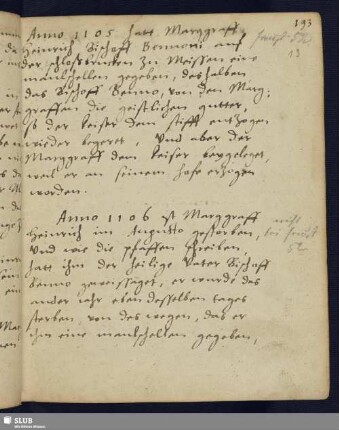 193
Anno 1105 hatt Marggraff
Heinrich Bischoff Bennoni auf
der schlosbrucken zu Meissen eine
maulschellen gegeben, deshalben
das Bischoff Benno, von dem Marg:
graffen die geistlichen gutter,
so der keiser dem stifft entzogen
wieder begeret, Und aber der
Marggraff dem keiser beygeleget,
weil er an seinem hofe erzogen
worden.
Anno 1106 ist Marggraff
Heinrich im Augusto gestorben,
Und wie die pfaffen schreiben,
hatt ihm der heilige Vater Bischoff
Benno geweissaget, er wurde das
ander iahr eben desselben tages
sterben, von des wegen, das er
ihm eine maulschellen gegeben,
SLUB
Wir führen Wissen.